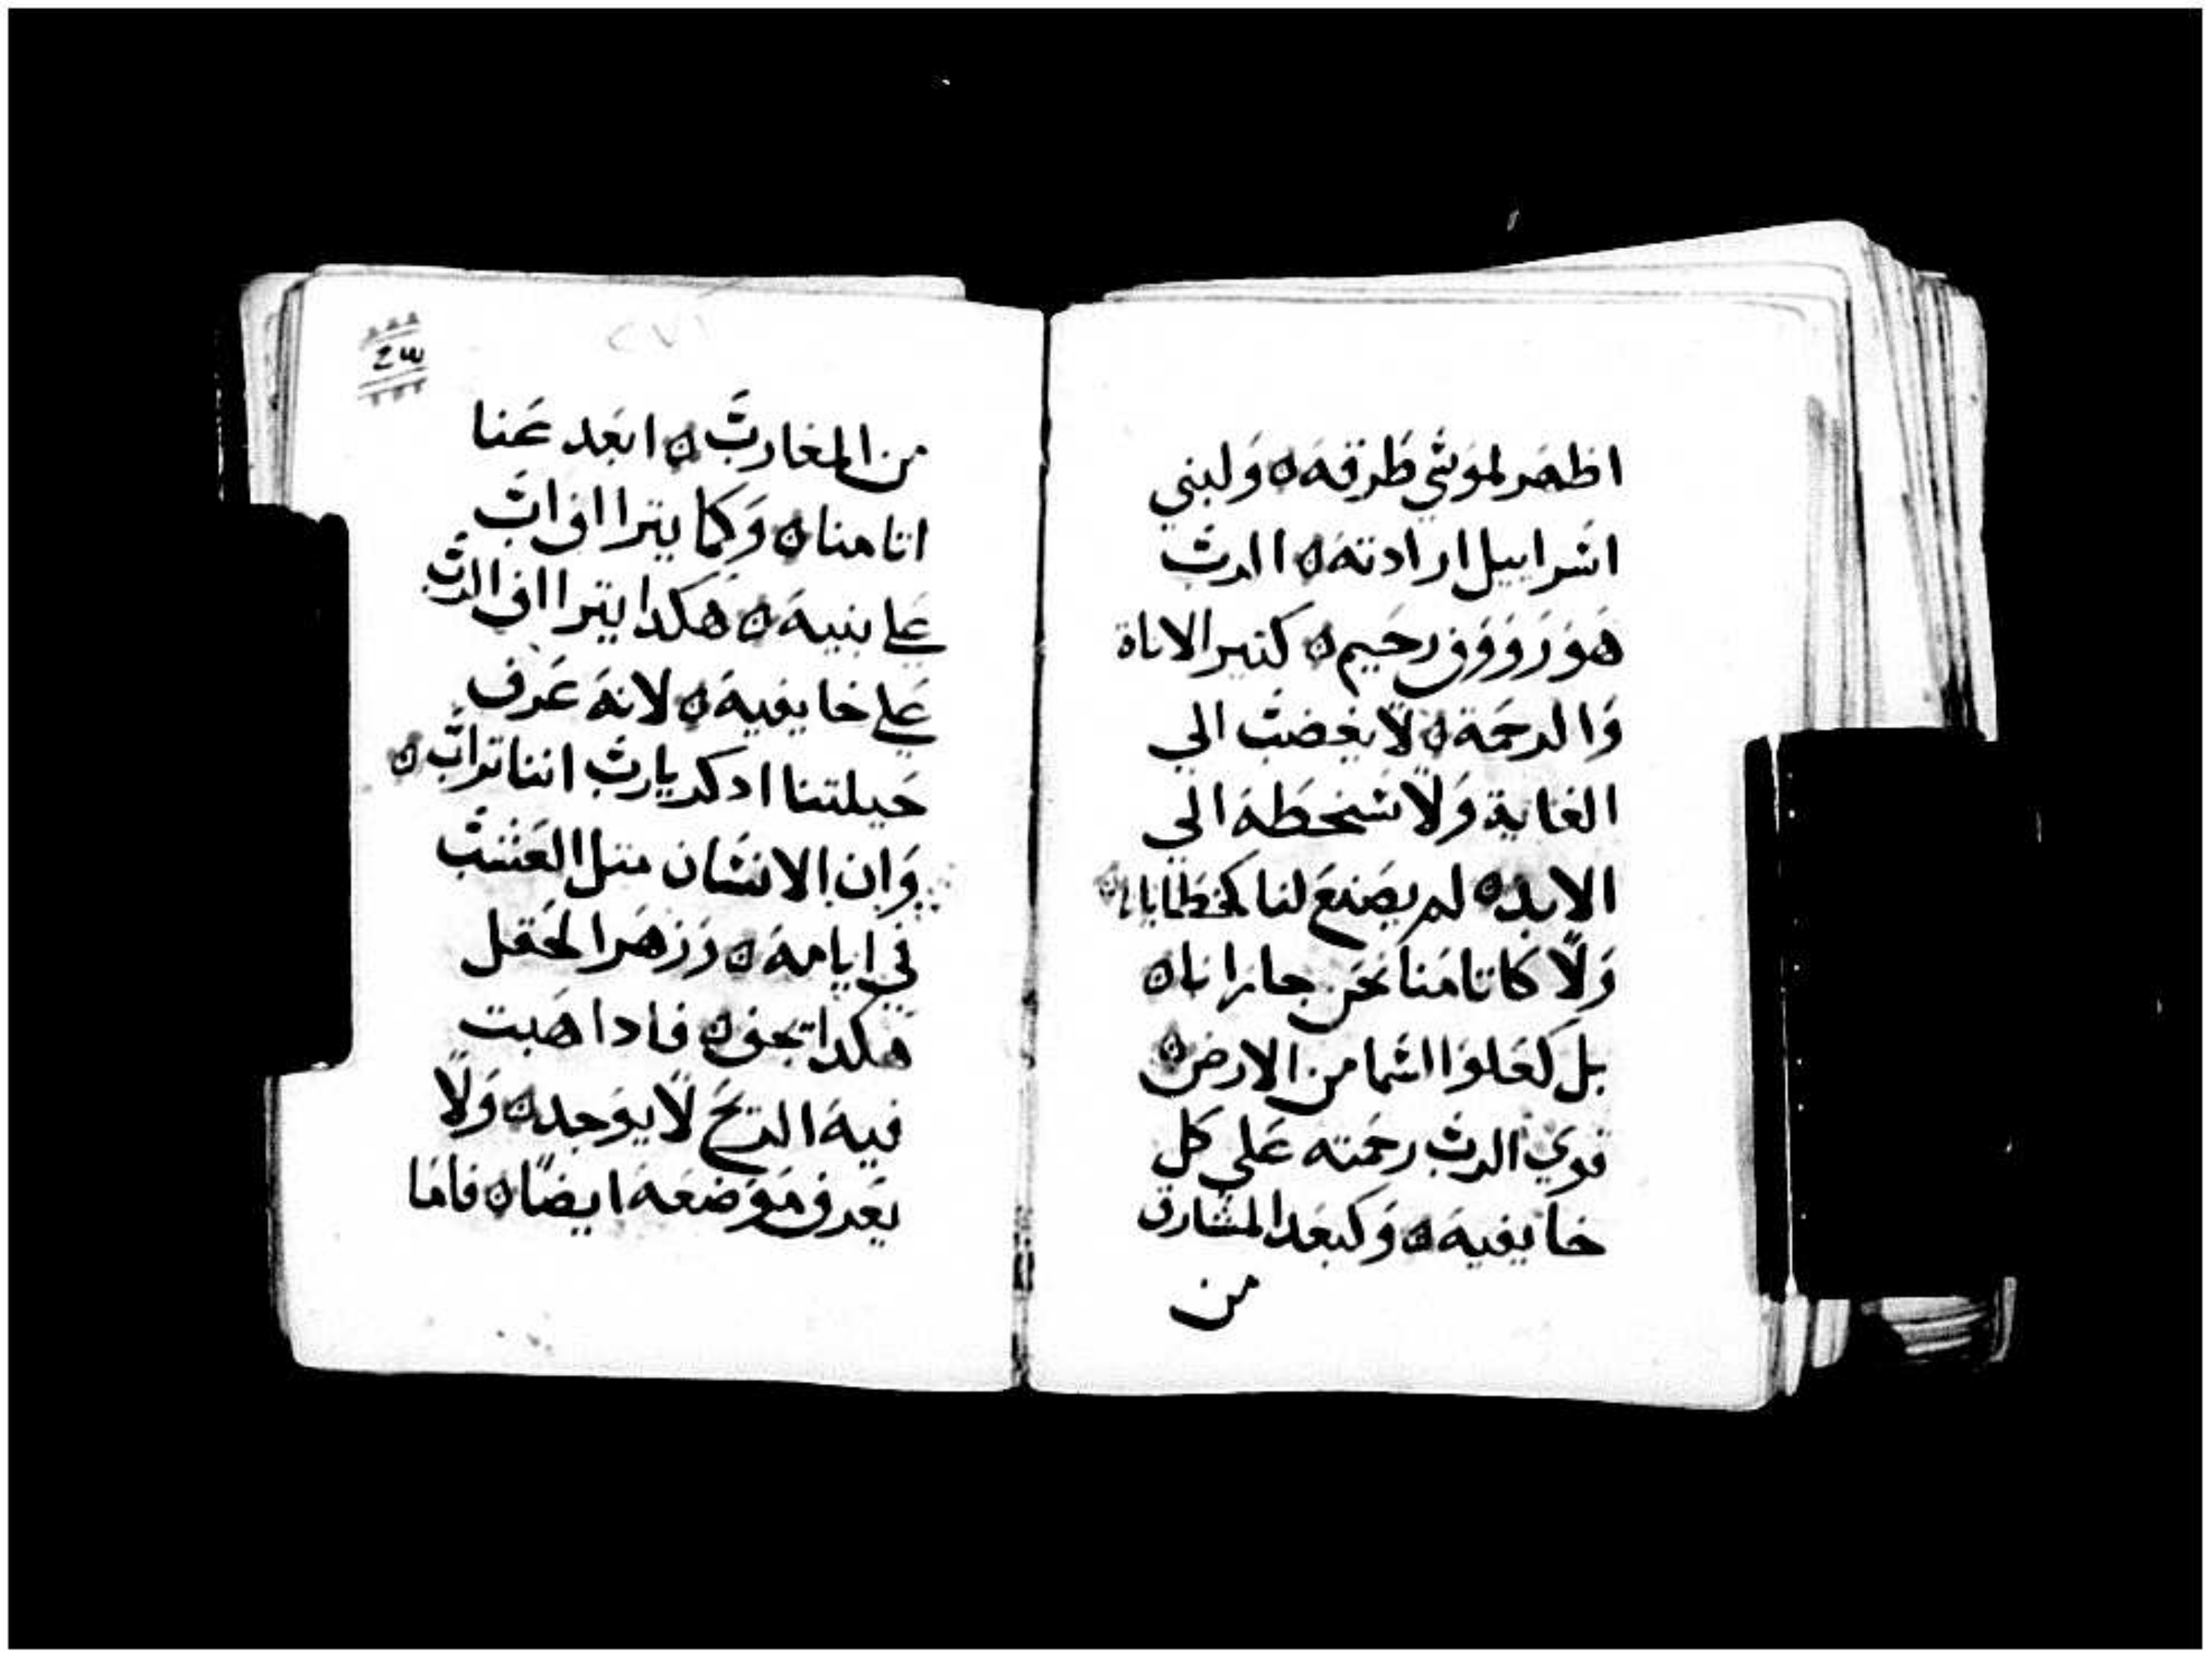 اظهر لموسي طرقه ٥ ولبني
اسراييل ارادته ٥ الرب
هو رووف رحيم ٥ كتير الاناة
والرحمة ٥ لا يغضب الي
الغاية ولا يسخطه الي
الابد ٥ لم يصنع لنا كخطايانا ٥
ولا كاتامنا نحن جازانا ٥
بل كعلوا السما من الارض ٥
قوي الرب رحمته علي كل
خايفيه ٥ وكبعد المشارق
من
٢٧١
من المغارب ٥ ابعد عنا
اتامنا ٥ وكما يتراأف اب
علي بنيه ٥ هكدا يتراأف الرب
علي خايفيه ٥ لانه عرف
جيلتنا ادكر يارب اننا تراب ٥
وان الانسان متل العشب
في ايامه ٥ وزهر الحقل
هكدا يجف ٥ فادا هبت
فيه الريح لا يوجد ٥ ولا
يعرف موضعه ايضا ٥ فاما